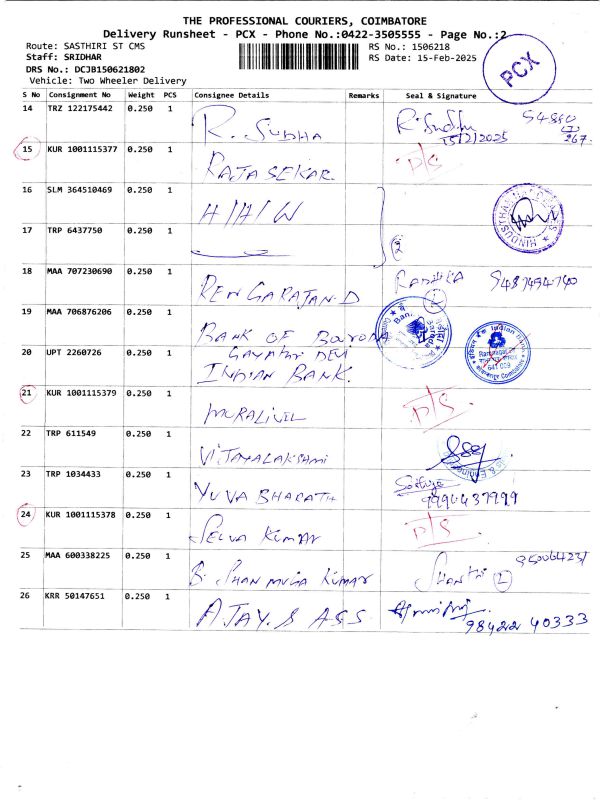 THE PROFESSIONAL COURIERS, COIMBATORE
Delivery Runsheet - PCX - Phone No.:0422-3505555 - Page No.:2
Route: SASTHIRI ST CMS
RS No.: 1506218
Staff: SRIDHAR
RS Date: 15-Feb-2025
DRS No.: DCJB150621802
Vehicle: Two Wheeler Delivery
PCX
S No Consignment No Weight PCS Consignee Details Remarks Seal & Signature
14 TRZ 122175442 0.250 1 R. SUBHA 15/2/2025
15 KUR 1001115377 0.250 1 RAJA SEKAR D/S
16 SLM 364510469 0.250 1 H/H/W
17 TRP 6437750 0.250 1 2
18 MAA 707230690 0.250 1 RENGARAJAN.D
19 MAA 706876206 0.250 1 BANK OF Baroda
GAYATHri DEVI
20 UPT 2260726 0.250 1 INDIAN BANK.
21 KUR 1001115379 0.250 1 D/S
22 TRP 611549 0.250 1 VIJAYALAKSAMI
23 TRP 1034433 0.250 1 YUVA BHARATH
24 KUR 1001115378 0.250 1 Selva Kumar D/S
25 MAA 600338225 0.250 1 B. SHANMUGA KUMAR Shanthi
26 KRR 50147651 0.250 1 AJAY.S ASS
98422 40333